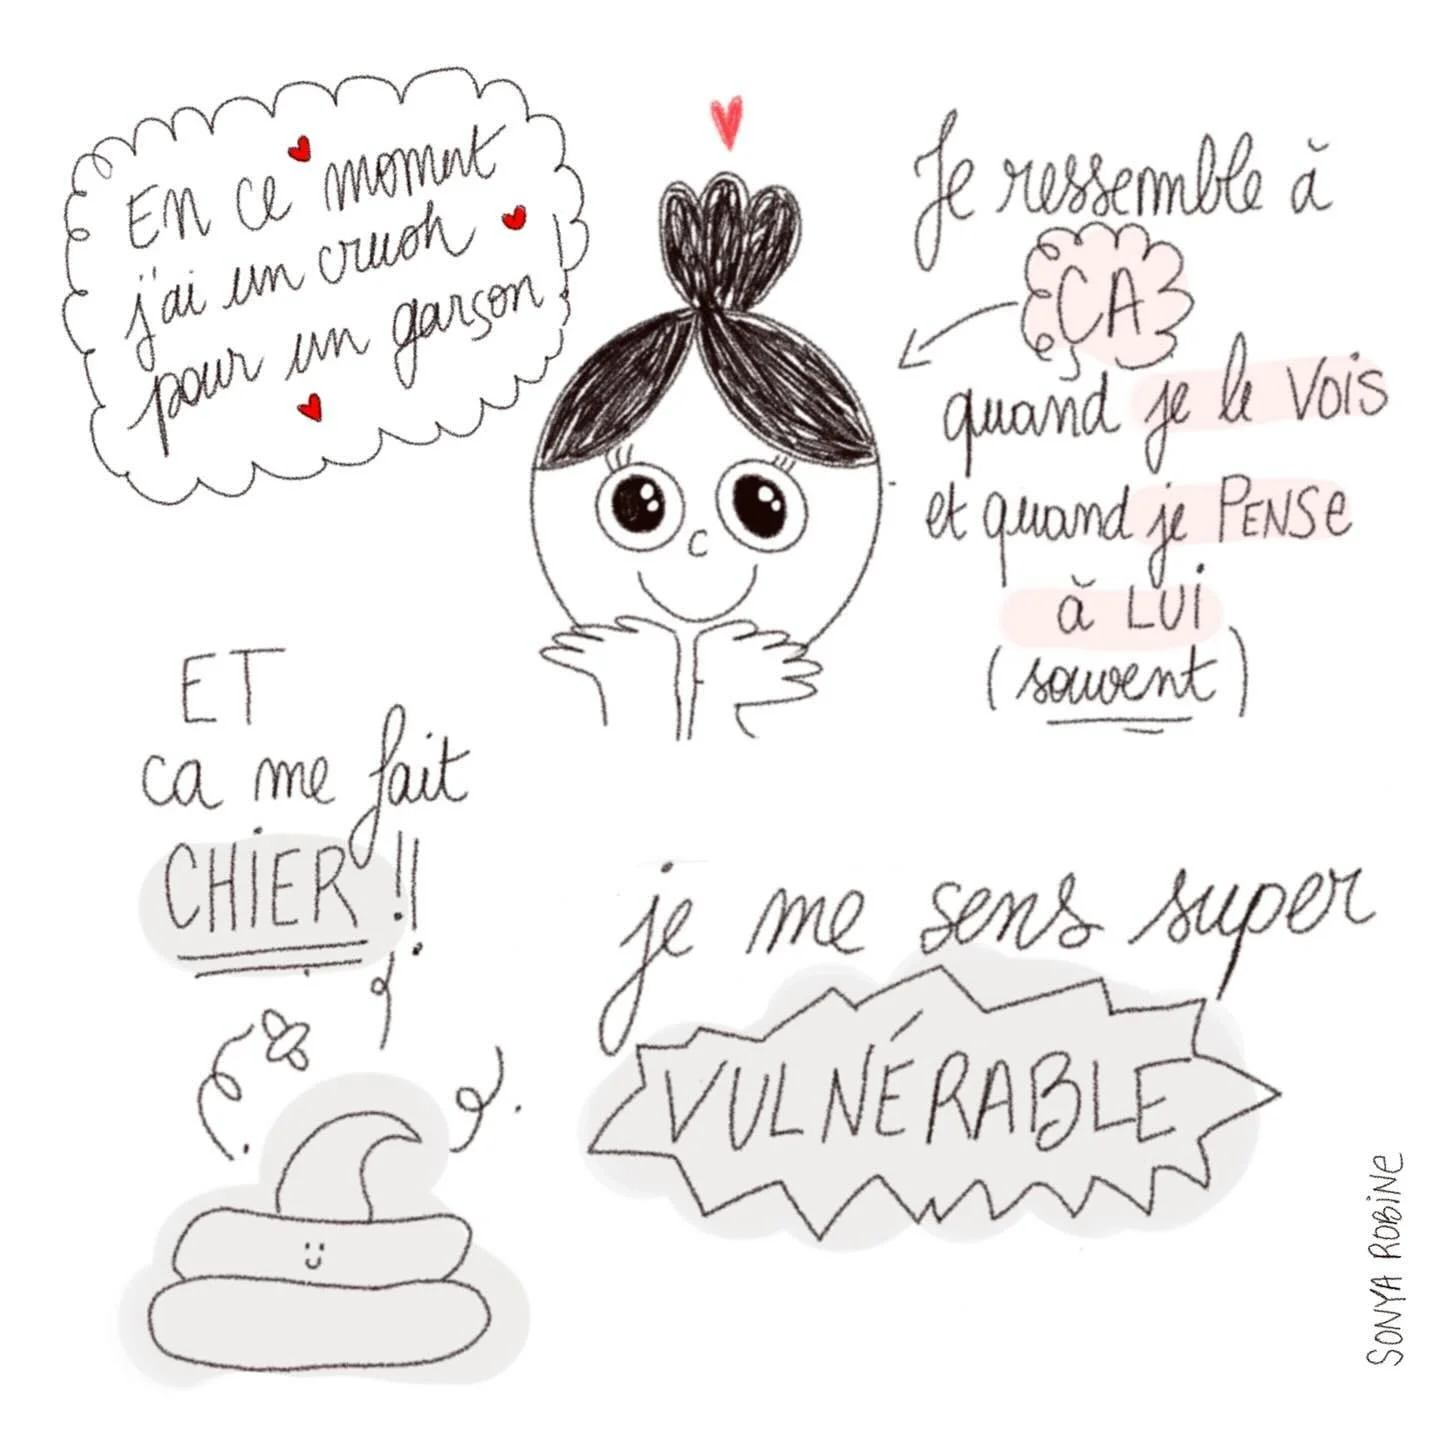 En ce moment
j'ai un crush
pour un garçon
Je ressemble à
ÇA
quand je le VOIS
et quand je PENSE
à LUI
(souvent)
ET
ca me fait
CHIER !!
je me sens super
VULNÉRABLE
SONYA ROBINE